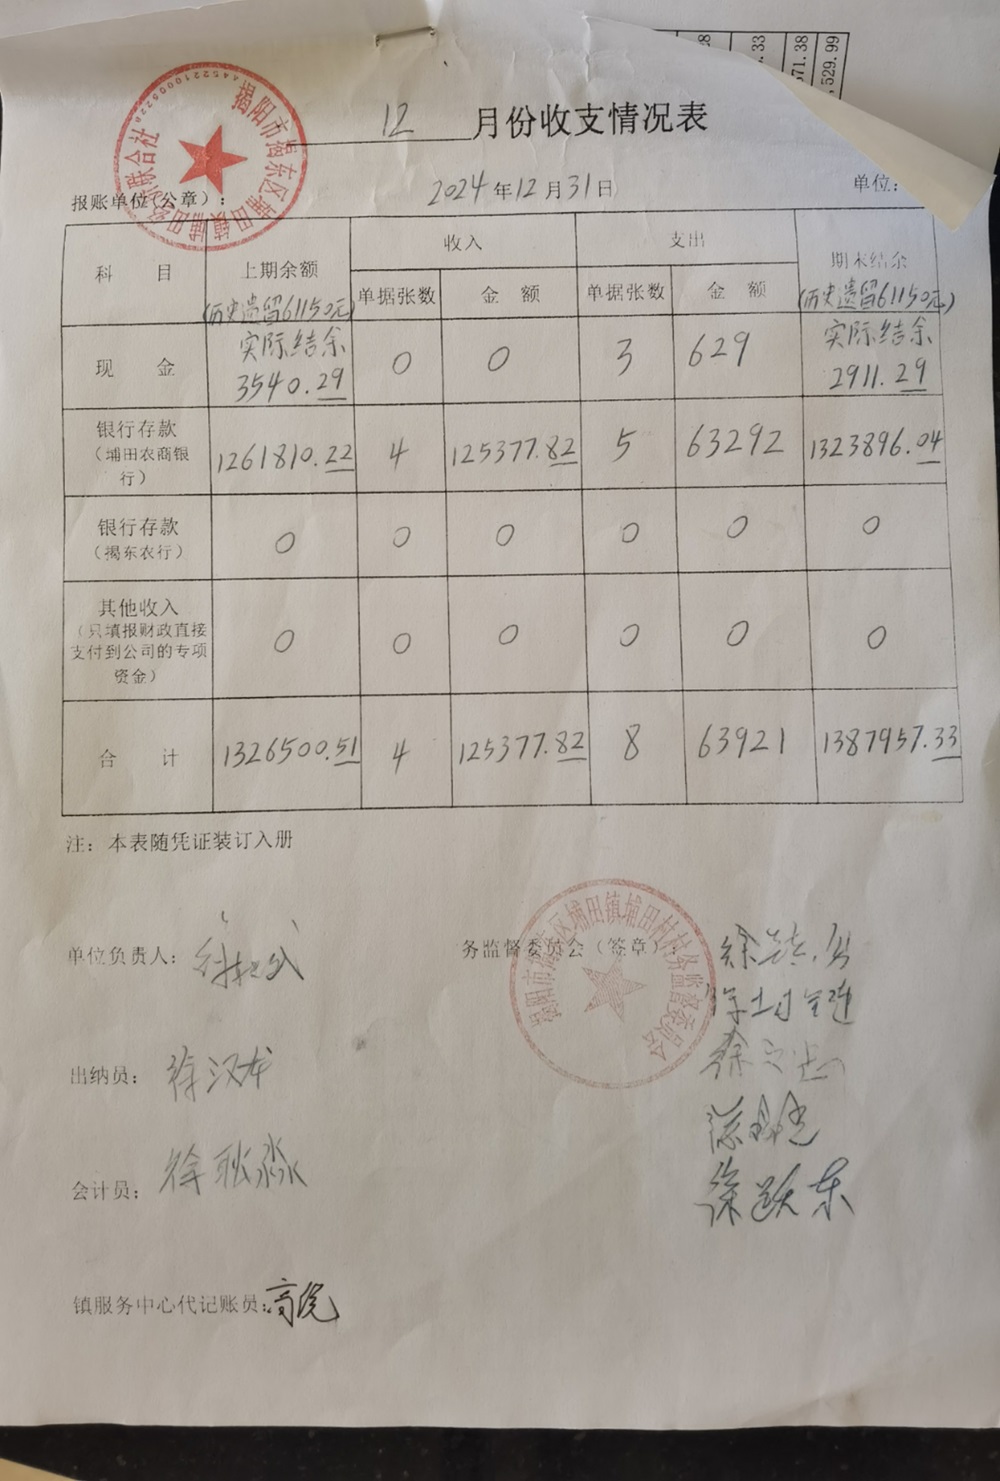 28
.33
571.38
,529.99
12月份收支情况表
揭阳市揭东区埔田镇埔田经济联合社
4452210005228
报账单位(公章)：
2024年12月31日
单位：
科 目
上期余额
(历史遗留61150元)
收入
支出
期末结余
(历史遗留61150元)
单据张数
金 额
单据张数
金 额
现 金
实际结余
3540.29
0
0
3
629
实际结余
2911.29
银行存款
（埔田农商银
行）
1261810.22
4
125377.82
5
63292
1323896.04
银行存款
（揭东农行）
0
0
0
0
0
0
其他收入
（只填报财政直接
支付到公司的专项
资金）
0
0
0
0
0
0
合 计
1326500.51
4
125377.82
8
63921
1387957.33
注：本表随凭证装订入册
单位负责人：
务监督委员会（签章）：
揭阳市揭东区埔田镇埔田村村务监督委员会
出纳员：徐汉龙
会计员：徐耿淼
徐跃东
镇服务中心代记账员：